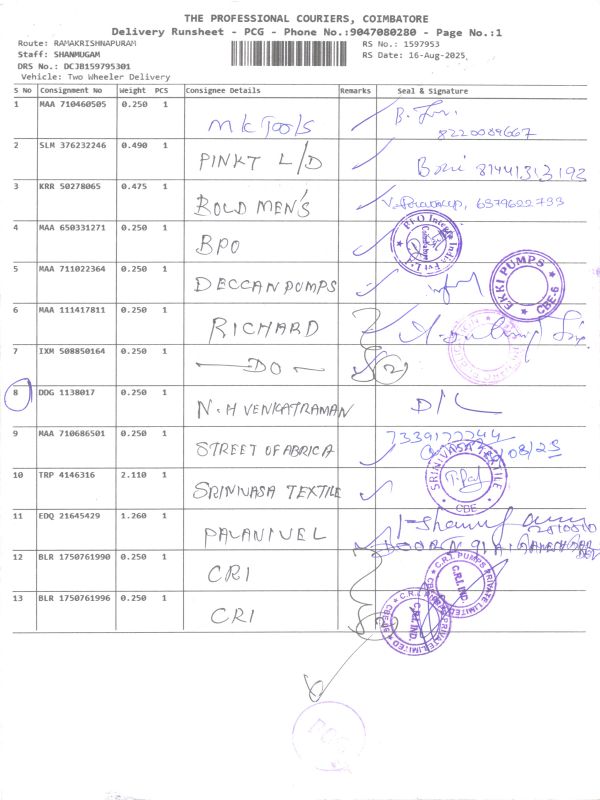 THE PROFESSIONAL COURIERS, COIMBATORE
Delivery Runsheet - PCG - Phone No.:9047080280 - Page No.:1
Route: RAMAKRISHNAPURAM RS No.: 1597953
Staff: SHANMUGAM RS Date: 16-Aug-2025
DRS No.: DCJB159795301
Vehicle: Two Wheeler Delivery
S No Consignment No Weight PCS Consignee Details Remarks Seal & Signature
1 MAA 710460505 0.250 1 MK Tools 8220089667
2 SLM 376232246 0.490 1 PINKT L/D 81441313193
3 KRR 50278065 0.475 1 BOLD MEN'S 6379622733
4 MAA 650331271 0.250 1 BPO
5 MAA 711022364 0.250 1 DECCAN PUMPS EKKI PUMPS CBE-6
6 MAA 111417811 0.250 1 RICHARD
7 IXM 508850164 0.250 1 DO 2
8 DDG 1138017 0.250 1 N.H VENKATRAMAN D/L
9 MAA 710686501 0.250 1 STREET OF ABRICA 7339177744
10 TRP 4146316 2.110 1 SRINIVASA TEXTILE SRINIVASA TEXTILE CBE
11 EDQ 21645429 1.260 1 PALANIVEL
12 BLR 1750761990 0.250 1 CRI C.R.I. PUMPS PRIVATE LIMITED C.R.I. INC.
13 BLR 1750761996 0.250 1 CRI C.R.I. IND.